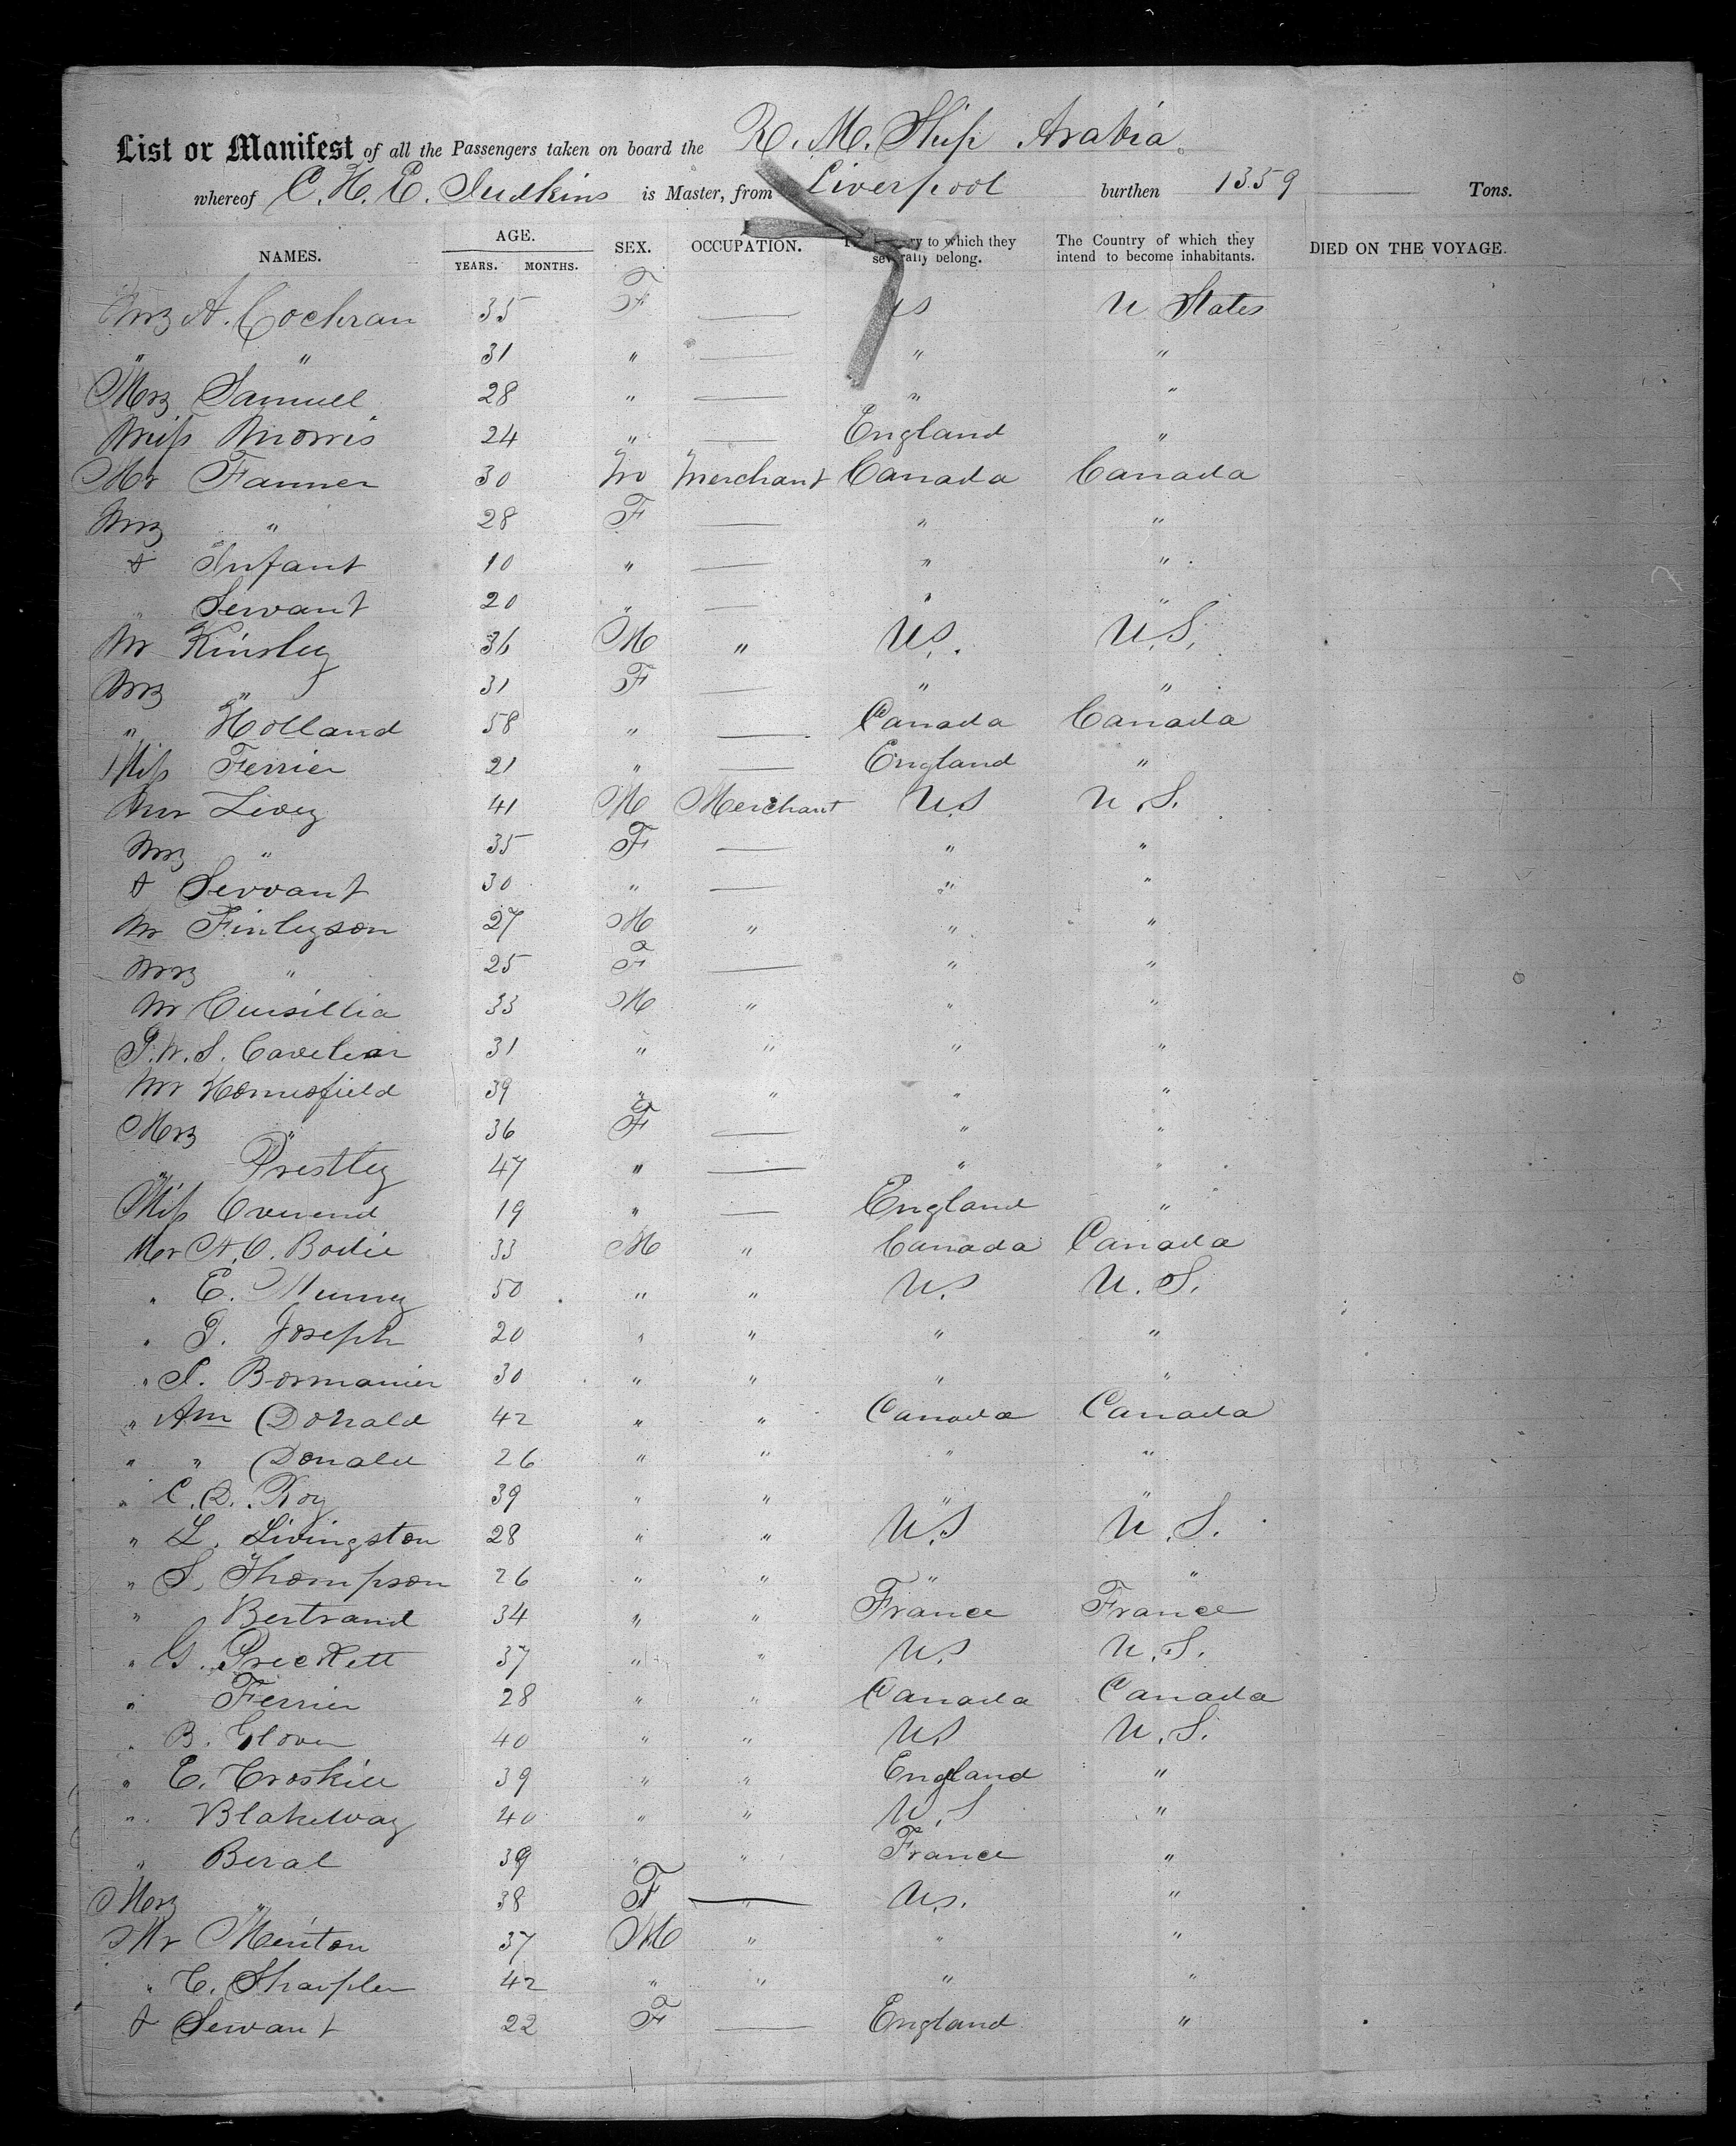 List or Manifest of all the Passengers taken on board the R. M. Ship Arabia
whereof C. H. E. Judkins is Master, from Liverpool burthen 1359 Tons.
NAMES. AGE. YEARS. MONTHS. SEX. OCCUPATION. to which they severally belong. The Country of which they intend to become inhabitants. DIED ON THE VOYAGE.
Mrs A. Cochran 35 F — US U States
" " 31 " — " "
Mrs Samuel 28 " — " "
Miss Morris 24 " — England "
Mr Fanner 30 M Merchant Canada Canada
Mrs " 28 F — " "
& Infant 10 " — " "
" Servant 20 " — " "
Mr Kinsley 36 M " U.S. U.S.
Mrs " 31 F — " "
" Holland 58 " — Canada Canada
Miss Ferrier 21 " — England "
Mr Livey 41 M Merchant U.S U.S.
Mrs " 35 F — " "
& Servant 30 " — " "
Mr Finlyson 27 M " " "
Mrs " 25 F — " "
Mr 33 M " " "
31 " " " "
Mr 39 " " " "
Mrs " 36 F — " "
" Prestley 47 " — " "
Miss Overend 19 " — England "
Mr A. O. Bodie 33 M " Canada Canada
" E. 50 " " U.S U.S.
" J. Joseph 20 " " " "
" S. Bormanier 30 " " " "
" Am Donald 42 " " Canada Canada
" " Donald 26 " " " "
" C. D. Roy 39 " " " "
" L. Livingston 28 " " U.S U.S.
" S. Thompson 26 " " " "
" Bertrand 34 " " France France
" G. Preckett 37 " " U.S U.S.
" Ferrier 28 " " Canada Canada
" B. Glover 40 " " U.S U.S.
" E. Croskill 39 " " England "
" Blakeway 40 " " U.S "
" Beral 39 " " France "
Mrs " 38 F — U.S. "
Mr Menton 37 M " " "
" C. Sharples 42 " " " "
& Servant 22 F — England "